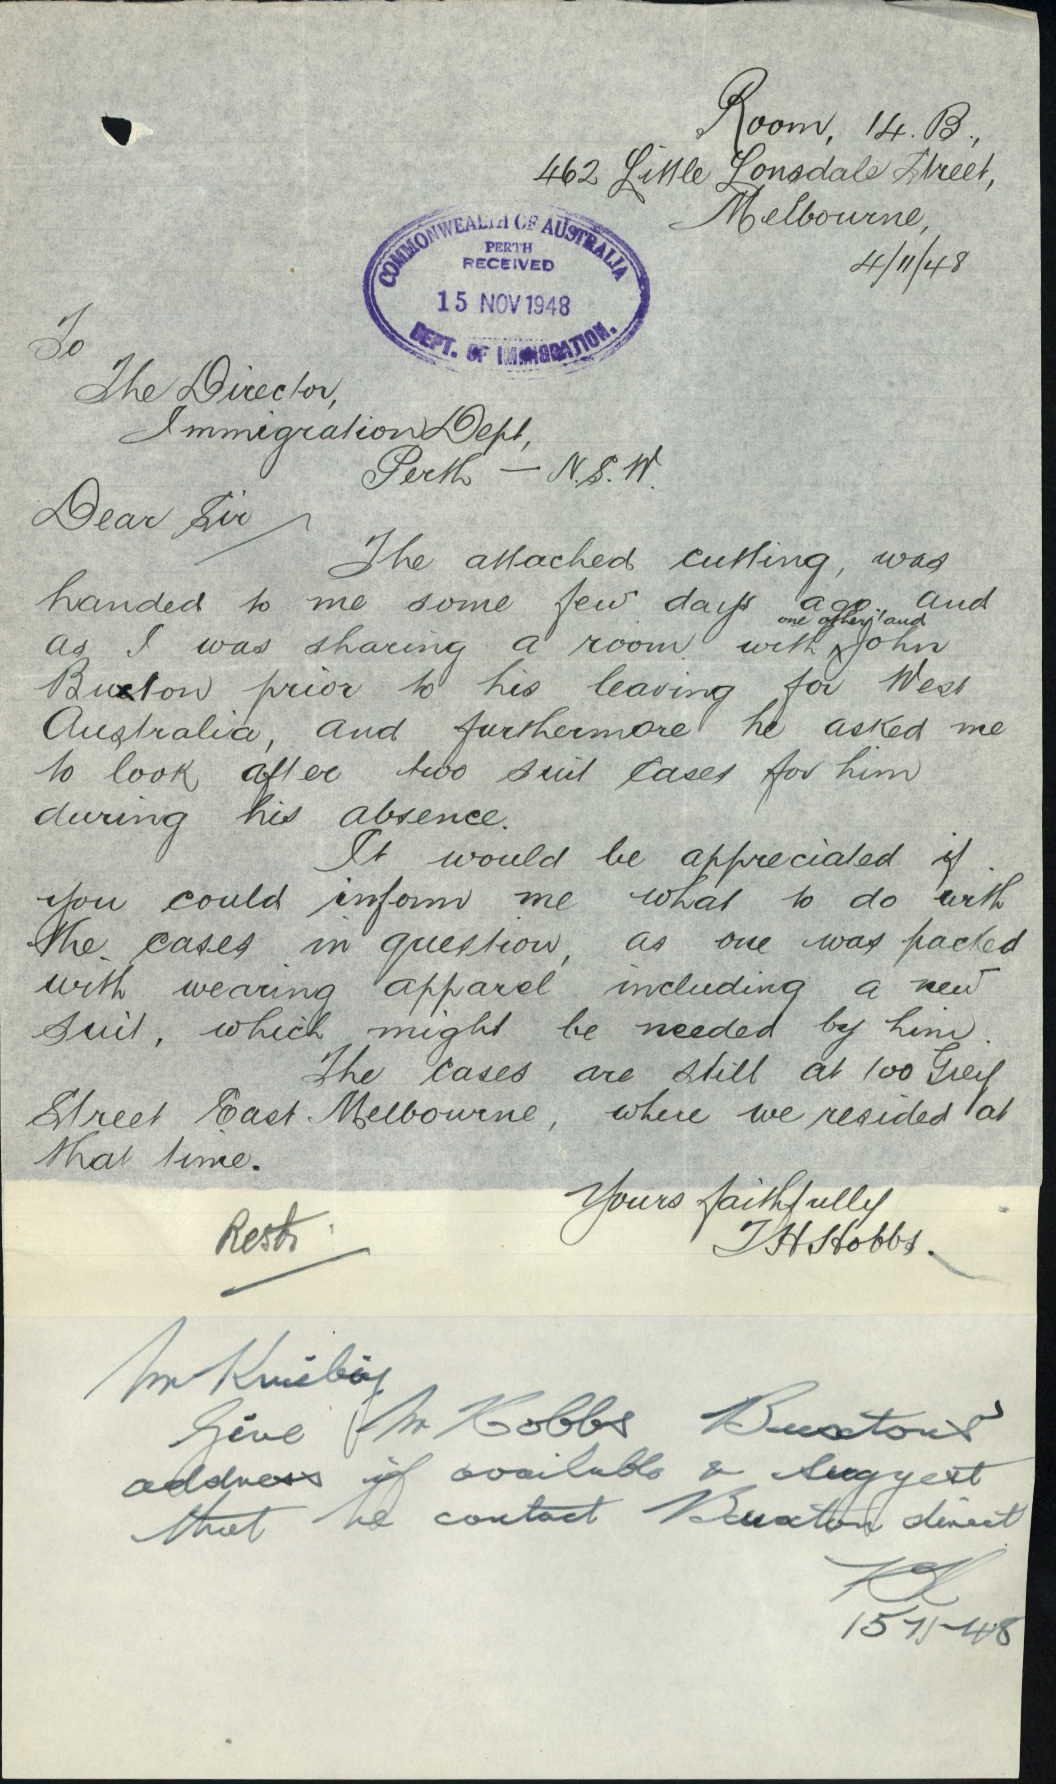 Room, 14. B.,
462 Little Lonsdale Street,
Melbourne,
4/11/48
COMMONWEALTH OF AUSTRALIA
PERTH
RECEIVED
15 NOV 1948
DEPT. OF IMMIGRATION.
To
The Director,
Immigration Dept,
Perth — N.S.W.
Dear Sir
The attached cutting, was
handed to me some few days ago. and
as I was sharing a room with one other and John
Buxton prior to his leaving for West
Australia, and furthermore he asked me
to look after two suit cases for him
during his absence.
It would be appreciated if
you could inform me what to do with
the cases in question, as one was packed
with wearing apparel including a new
suit, which might be needed by him.
The cases are still at 100 Grey
Street East Melbourne, where we resided at
that time.
Yours faithfully
T H Hobbs.
Mr
Give Mr Hobbs Buxton's
address if available & suggest
that he contact Buxton direct
15-11-48